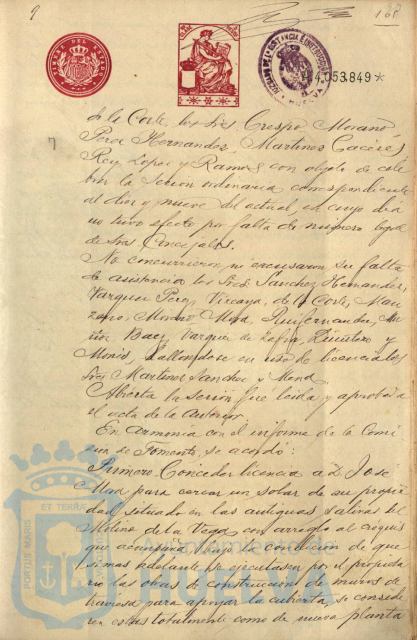 9
168
TIMBRE DEL ESTADO
4.053.849*
HUELVA
de la Corte, los Sres Crespo, Morano,
Perez Hernandez, Martinez Caceres,
Rey Lopez y Ramos con objeto de cele
brar la sesion ordinaria correspondiente
al diez y nueve del actual, en cuyo dia
no tuvo efecto por falta de número legal
de Sres Concejales.
No concurrieron, ni excusaron su falta
de asistencia los Sres Sanchez Hernandez,
Vazquez Perez, Vizcaya, de la Corte, Man
zano, Moreno Mora,
Baez, Vazquez de Zafra, Quintero y
Monis, hallandose en uso de licencia los
Sres Martinez Sanchez y Mora.
Abierta la sesión fue leida y aprobada
el acta de la anterior.
En armonia con el informe de la Comi
sion de Fomento, se acordó:
Primero. Conceder licencia a D. José
para cercar un solar de su propie
dad situado en las antiguas salinas del
Molino de la Vega con arreglo al croquis
que acompaña y bajo la condicion de que
si mas adelante se ejecutasen por el propieta
rio las obras de construccion de muros de
traviesa para apoyar la cubierta, se conside
ren estas totalmente como de nueva planta
PORTUS MARIS ET TERRAE
Ayuntamiento de
HUELVA